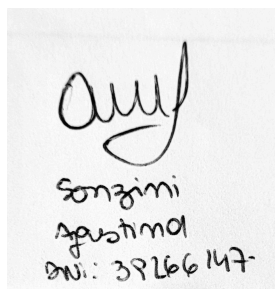 Sonzini
Agustina
DNI: 39266147-